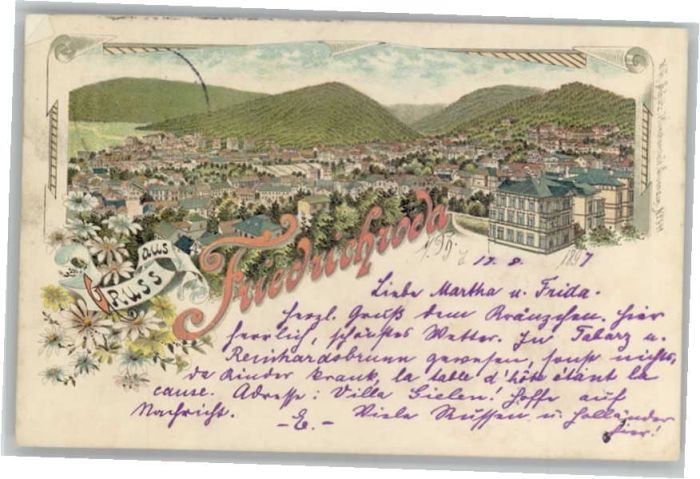 Gruss aus
Friedrichroda
17. 8. 1897
Liebe Martha u. Frida.
Herzl. Gruß dem Kränzchen. Hier
herrlich, schönstes Wetter. In Tabarz u.
Reinhardsbrunn gewesen, sonst nichts,
da Kinder krank, la table d'hôte étant la
cause. Adresse: Villa Gielen! Hoffe auf
Nachricht. -E.- Viele Russen u. Holländer
hier!